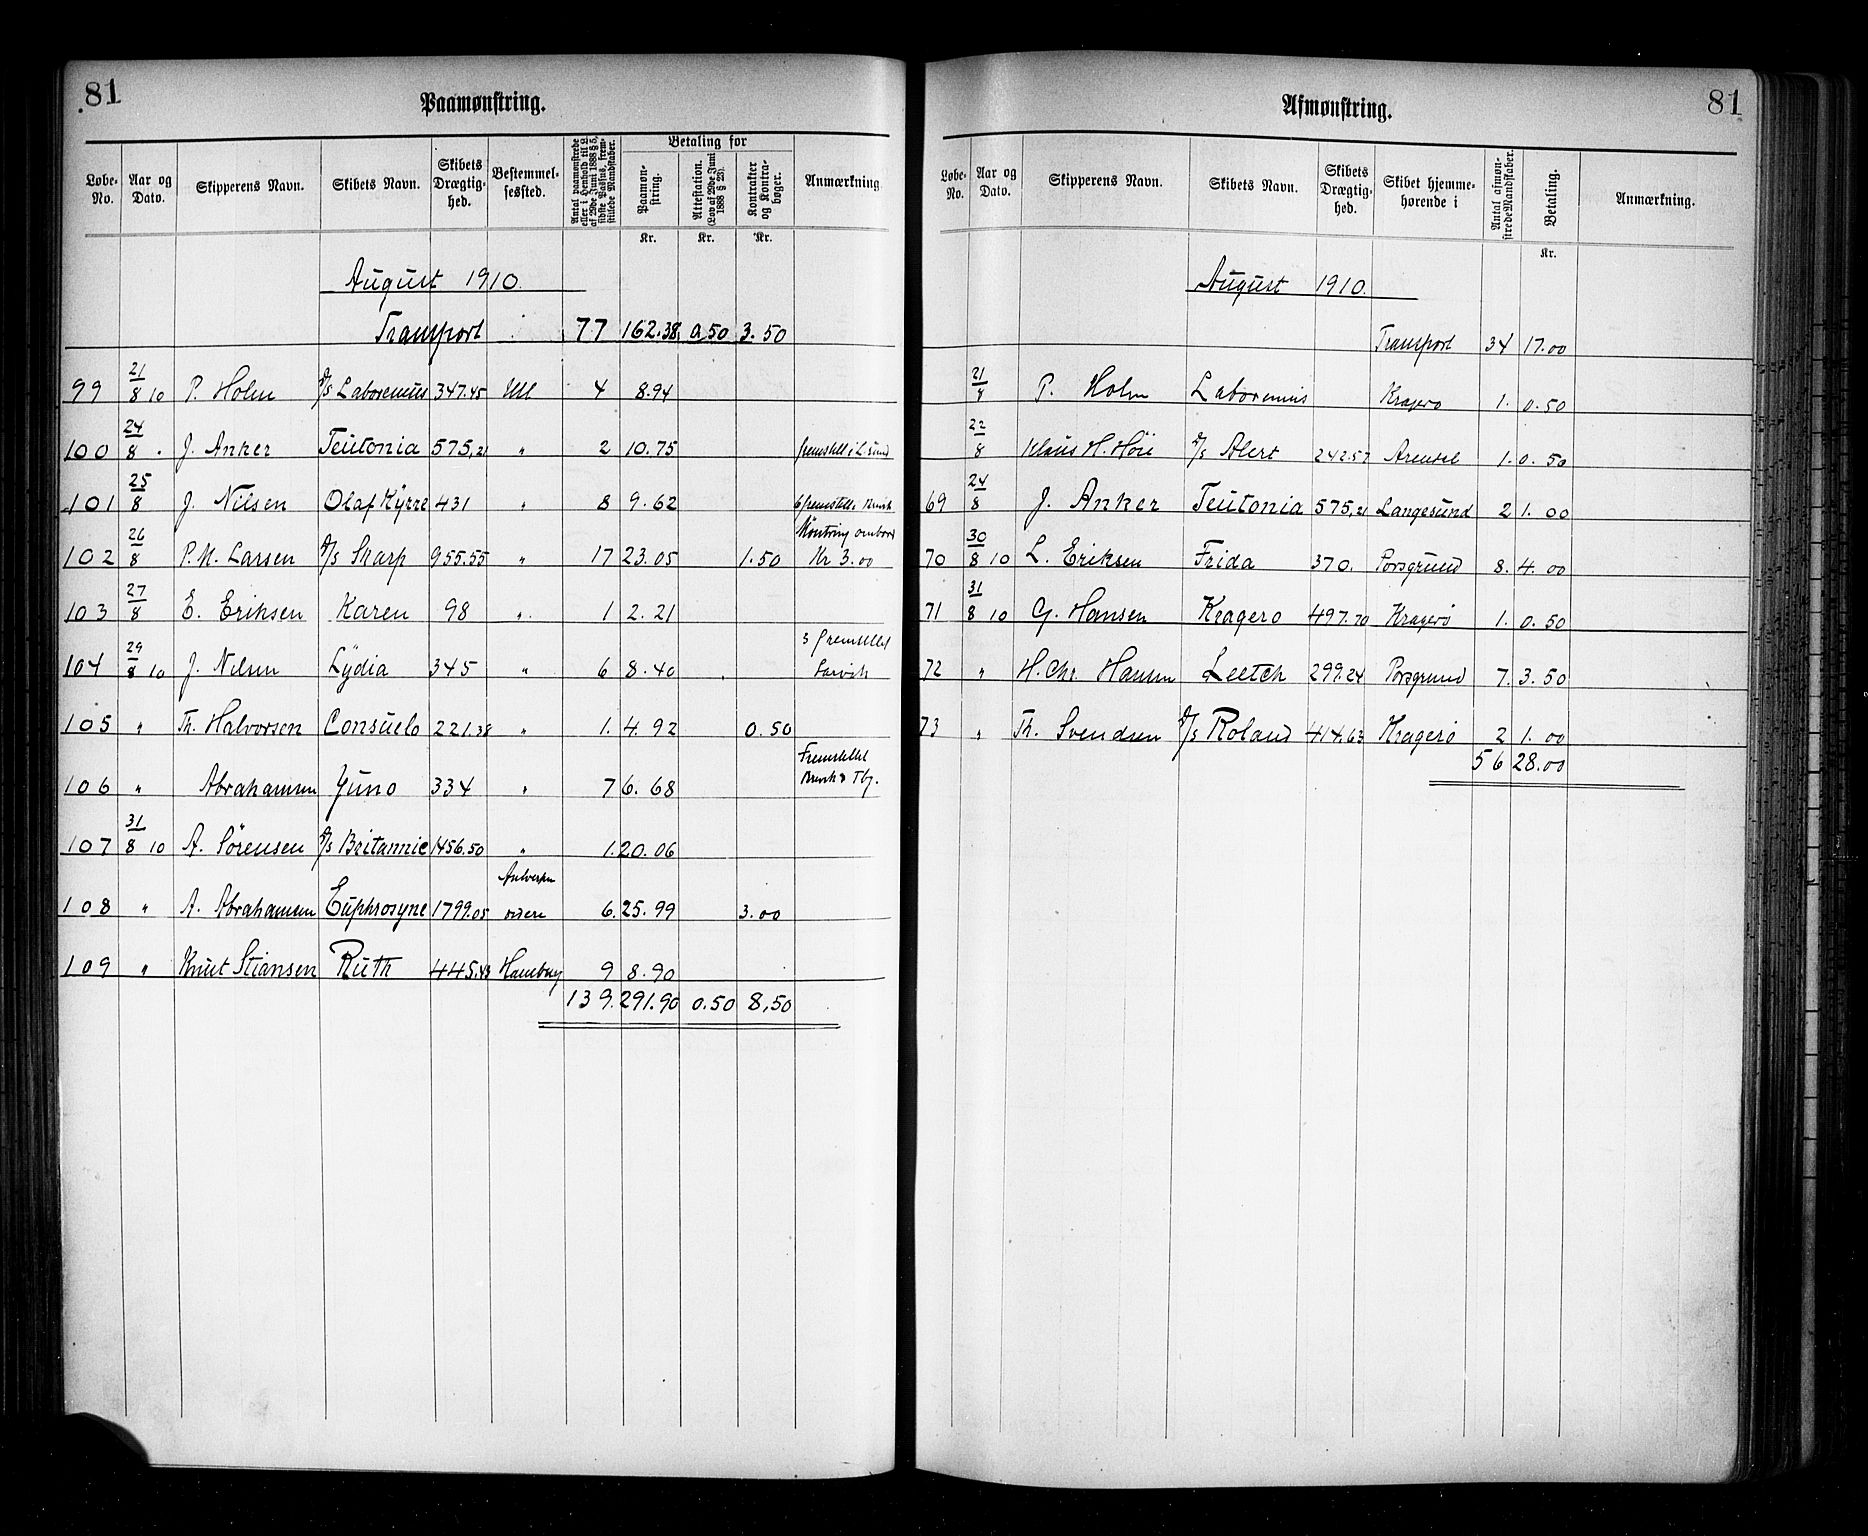 81
Paamønstring.
Løbe-No. Aar og Dato. Skipperens Navn. Skibets Navn. Skibets Drægtig-hed. Bestemmel-sessted. Antal paamønstrede eller i Henhold til L. af 29de Juni 1888 § 5, sidste Passus, frem-stillede Mandskaber. Betaling for Paamøn-string. Attestation. (Lov af 29de Juni 1888 § 23). Kontrakter og Kontra-bøger. Anmærkning
Kr. Kr. Kr.
August 1910.
Transport 77 162.38 0,50 3.50
99 21/8 10 P. Holm D/S Laboremus 347.45 Utl 4 8.94
100 24/8 J. Anker Teutonia 575,21 " 2 10.75 fremstill i L.sund
101 25/8 J. Nilsen Olaf Kyrre 431 " 8 9.62 6 fremstill
102 26/8 P. M. Larsen D/S Skarp 955.55 " 17 23.05 1.50 Mönstring ombord Kr 3.00
103 27/8 E. Eriksen Karen 98 " 1 2.21
104 29/8 10 J. Nilsen Lydia 345 " 6 8.40 3 fremstillet Larvik
105 " Th. Halvorsen Consuelo 221.38 " 1. 4.92 0.50
106 " Abrahamsen Juno 334 " 7 6.68 Fremstillet
107 31/8 10 A. Sörensen D/S Britannic 1456.50 " 1. 20.06
108 " A. Abrahamsen Euphrosyne 1799.05 Antverpen videre 6. 25.99 3.00
109 " Knut Stiansen Ruth 445.43 Hamburg 9 8.90
139. 291.90 0.50 8,50
81
Afmønstring.
Løbe-No. Aar og Dato. Skipperens Navn. Skibets Navn. Skibets Drægtig-hed. Skibet hjemme-hørende i Antal afmøn-strede Mandskaber. Betaling. Anmærkning.
Kr.
August 1910.
Transport 34 17.00
21/8 P. Holm Laboremus Kragerø 1. 0.50
22/8 Klaus H. Höie D/S Alert 242.57 Arendal 1. 0.50
69 24/8 J. Anker Teutonia 575,21 Langesund 2 1.00
70 30/8 10 L. Eriksen Frida 370. Porsgrund 8. 4.00
71 31/8 10 G. Hansen Kragerø 497.70 Kragerø 1. 0.50
72 " H. Chr. Hansen Leetch 299.24 Porsgrund 7. 3.50
73 " Th. Svendsen D/S Roland 414.63 Kragerø 2 1.00
56 28.00